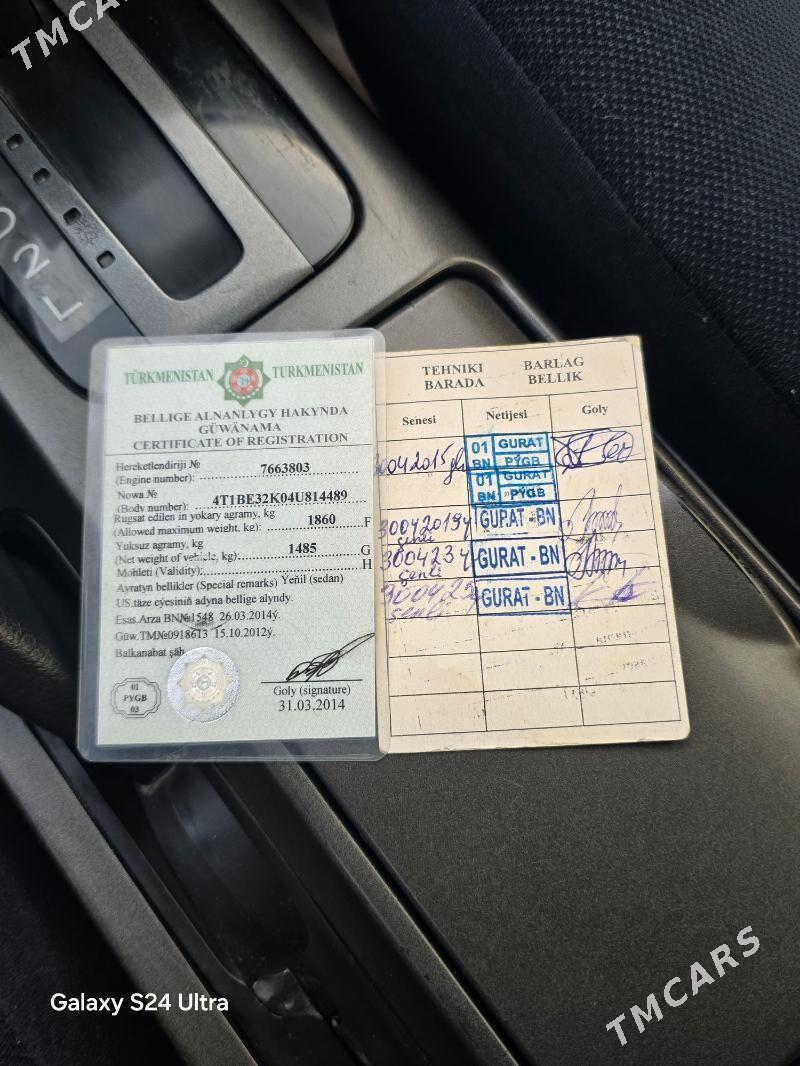 TMCARS
2
L
TÜRKMENISTAN TURKMENISTAN
BELLIGE ALNANLYGY HAKYNDA
GÜWÄNAMA
CERTIFICATE OF REGISTRATION
Hereketlendiriji №
(Engine number): 7663803
Nowa №
(Body number): 4T1BE32K04U814489
Rugsat edilen in yokary agramy, kg
(Allowed maximum weight, kg): 1860 F
Yuksuz agramy, kg
(Net weight of vehicle, kg): 1485 G
Mohleti (Validity): H
Ayratyn bellikler (Special remarks) Ýeňil (sedan)
US.täze eýesiniň adyna bellige alyndy.
Esas.Arza BN№1548 26.03.2014ý.
Güw.TM№0918613 15.10.2012ý.
Balkanabat şäh.
01
PYGB
03
Goly (signature)
31.03.2014
TEHNIKI BARLAG
BARADA BELLIK
Senesi Netijesi Goly
30042015 01 GURAT
BN PÝGB
01 GURAT
BN PÝGB
30042019ý GURAT - BN
çenli
300423ý GURAT - BN
çenli
300425 GURAT - BN
çenli
Galaxy S24 Ultra
TMCARS